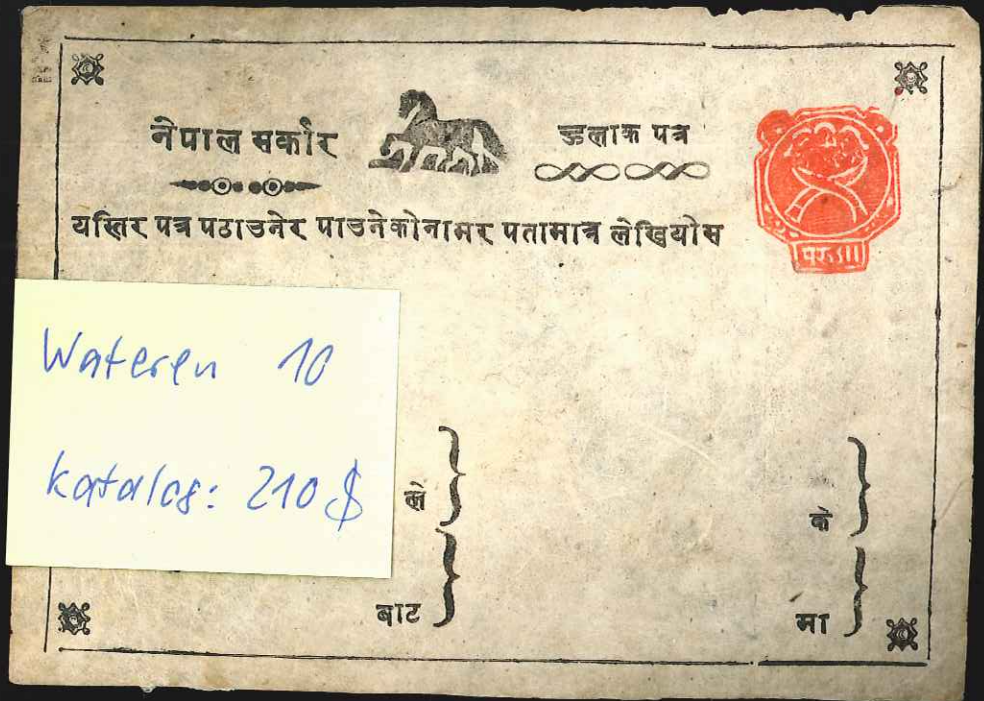 नेपाल सर्कार
हुलाक पत्र
यस्तिर पत्र पठाउनेर पाउनेकोनामर पतामात्र लेखियोस
Wateren 10
katalog: 210 $
ले
के
बाट
मा